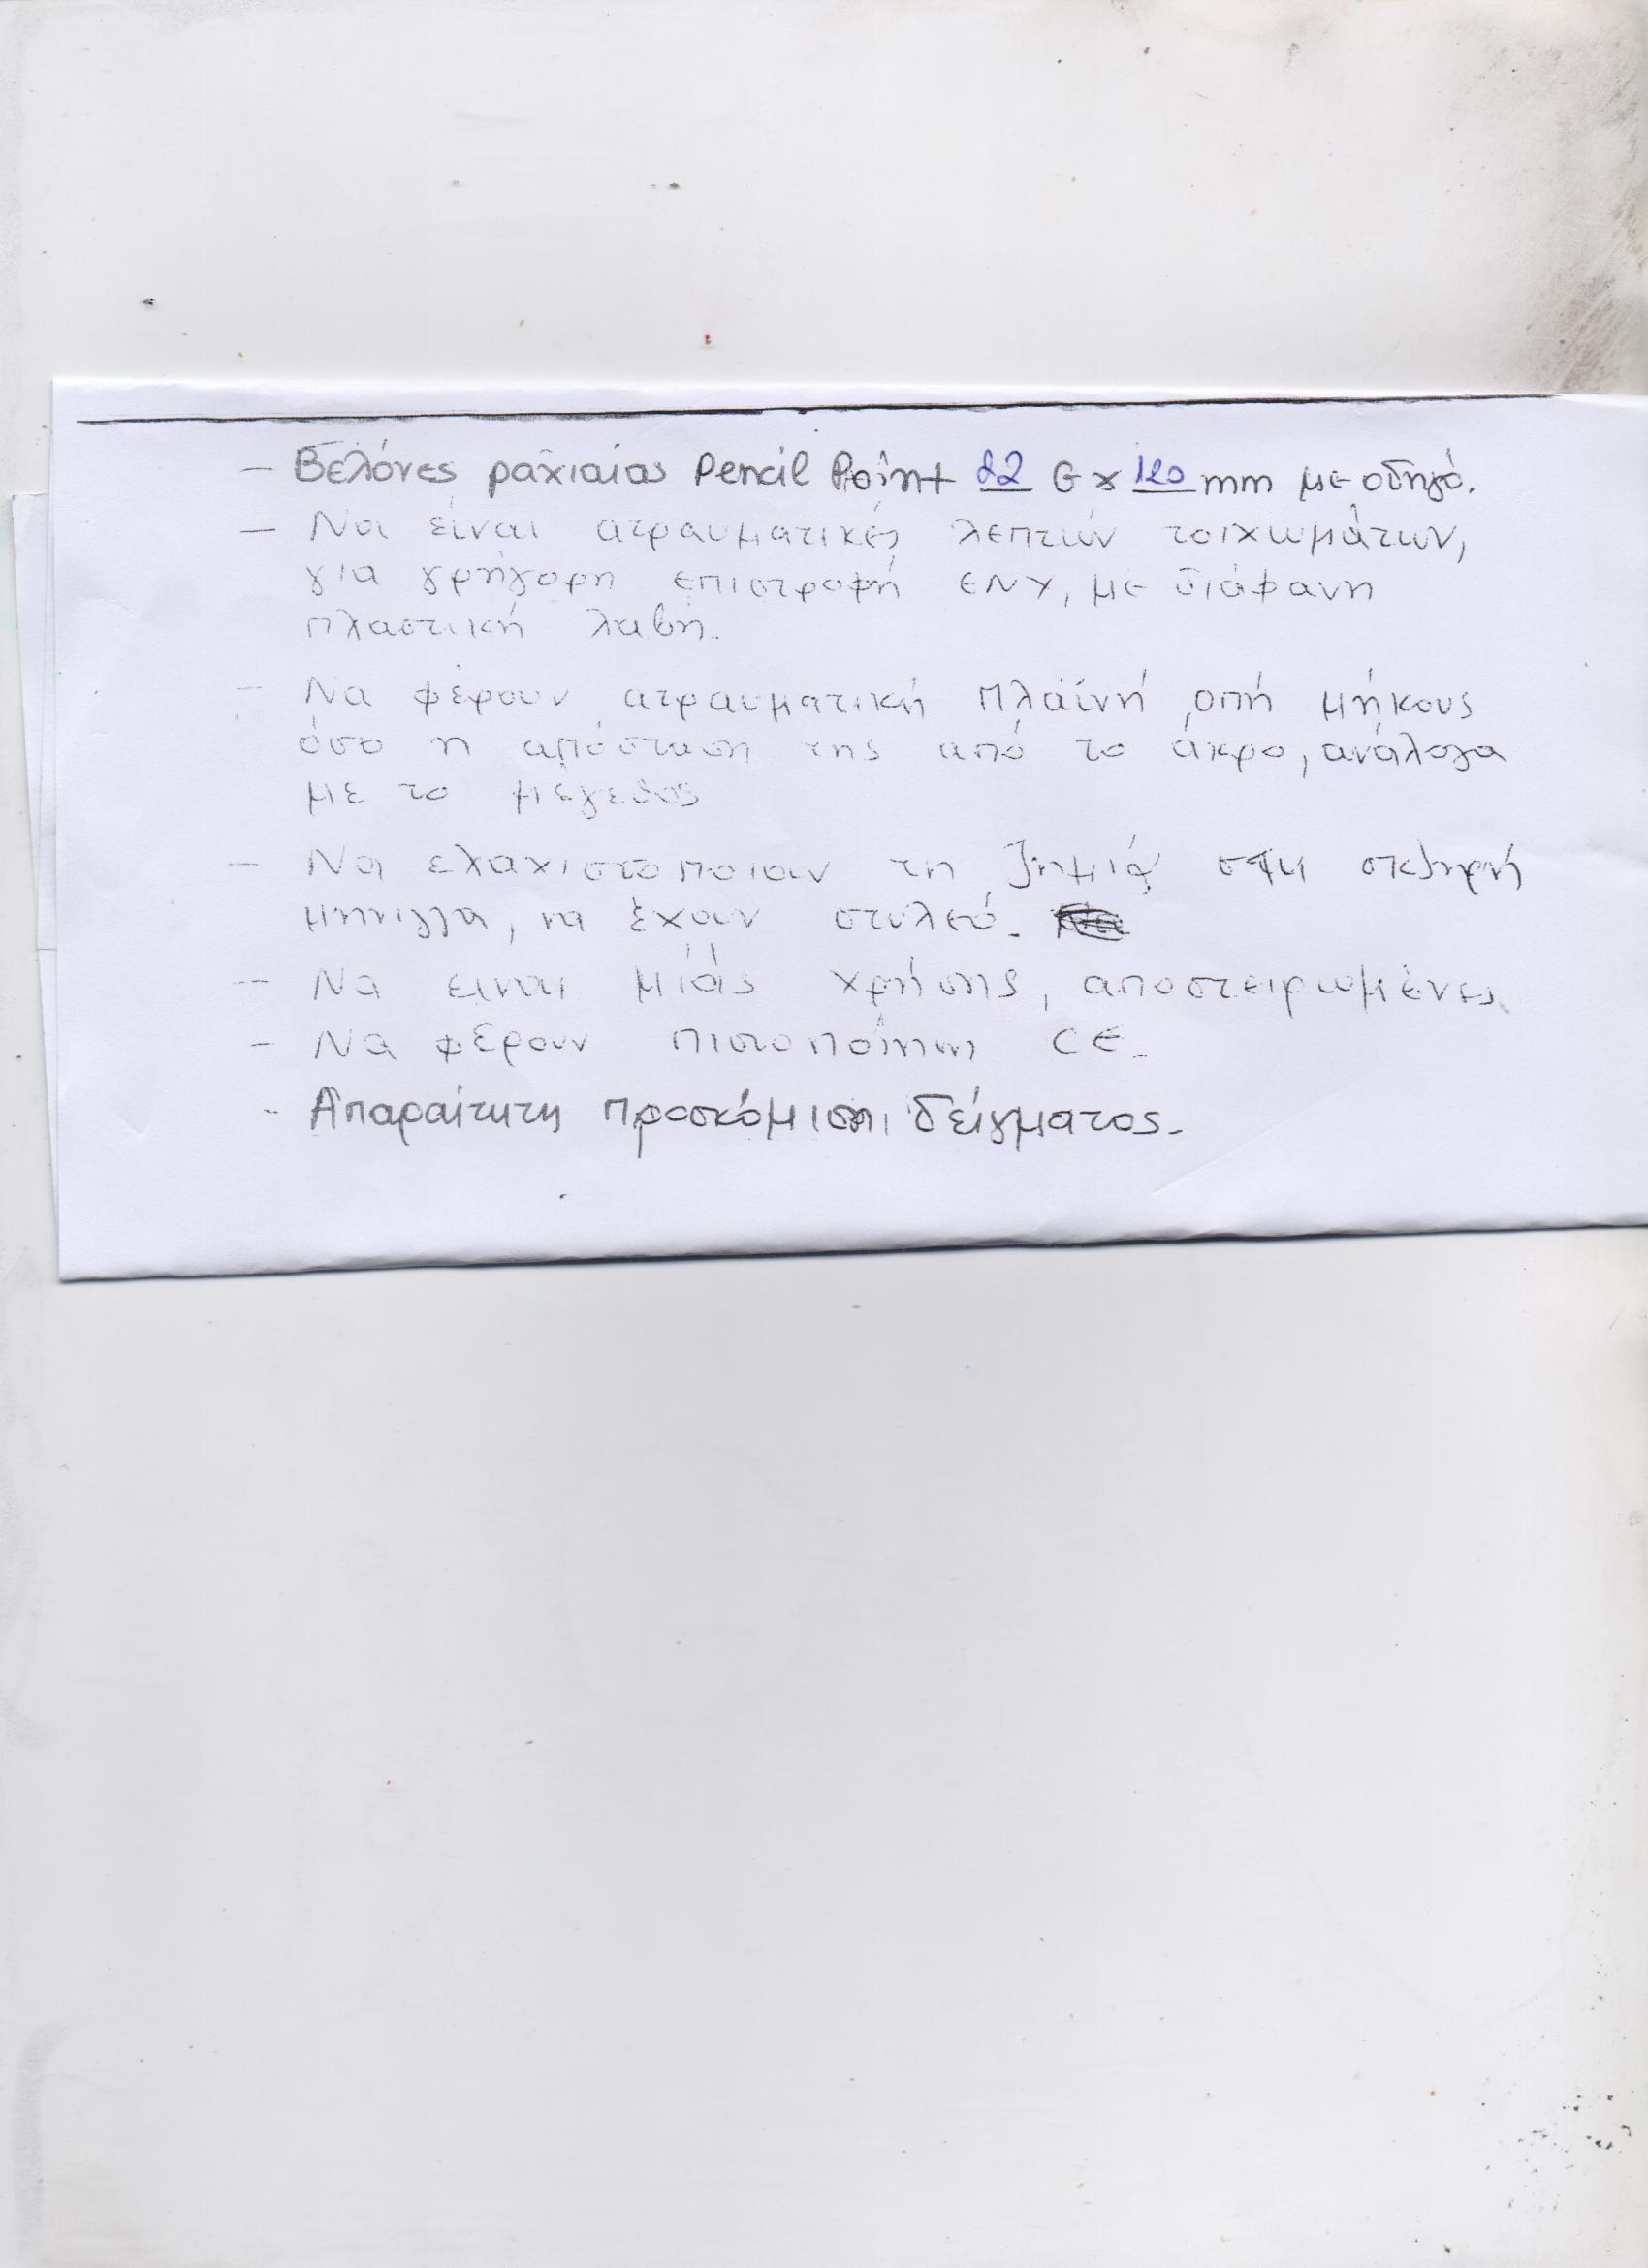 — Βελόνες ραχιαίας Pencil Point 22 G x 120 mm με οδηγό.
— Να είναι ατραυματικές λεπτών τοιχωμάτων,
για γρήγορη επιστροφή ΕΝΥ, με διάφανη
πλαστική λαβή.
— Να φέρουν ατραυματική πλαϊνή οπή μήκους
όσο η απόσταση της από το άκρο, ανάλογα
με το μέγεθος
— Να ελαχιστοποιούν τη ζημιά στη σκληρή
μήνιγγα, να έχουν στυλεό.
— Να είναι μιάς χρήσης, αποστειρωμένες
— Να φέρουν πιστοποίηση CE.
- Απαραίτητη προσκόμιση δείγματος.